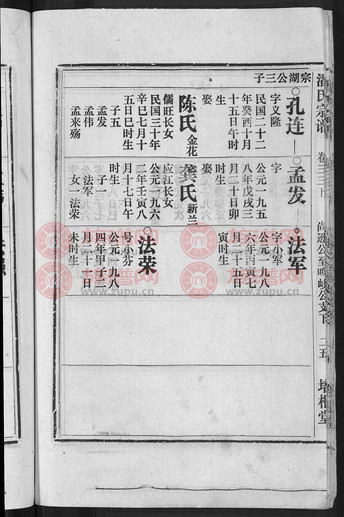 宗湖公三子
孔连
字义隆
民国二十二
年癸酉十月
十五日午时
生
娶
陈氏金花
儒旺长女
民国三十年
辛巳七月十
五日巳时生
子五
孟发
孟伟
孟来殇
孟发
字
公元一九五
八年戊戌三
月二十日卯
时生
娶
龚氏新兰
应江长女
公元一九六
二年壬寅八
月十七日午
时生
子一
法军
女一法荣
法军
字小军
公元一九八
六年丙寅七
月二十五日
寅时生
法荣
号小芬
公元一九八
四年甲子二
月二十八日
未时生
氏宗谱
卷三
二五
堂